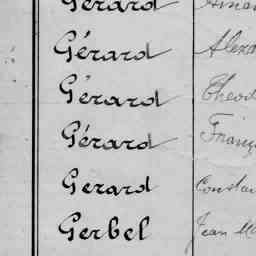 Gérard
Gérard Alexa
Gérard Théod
Gérard Franç
Gerard Constan
Gerbel Jean Ma